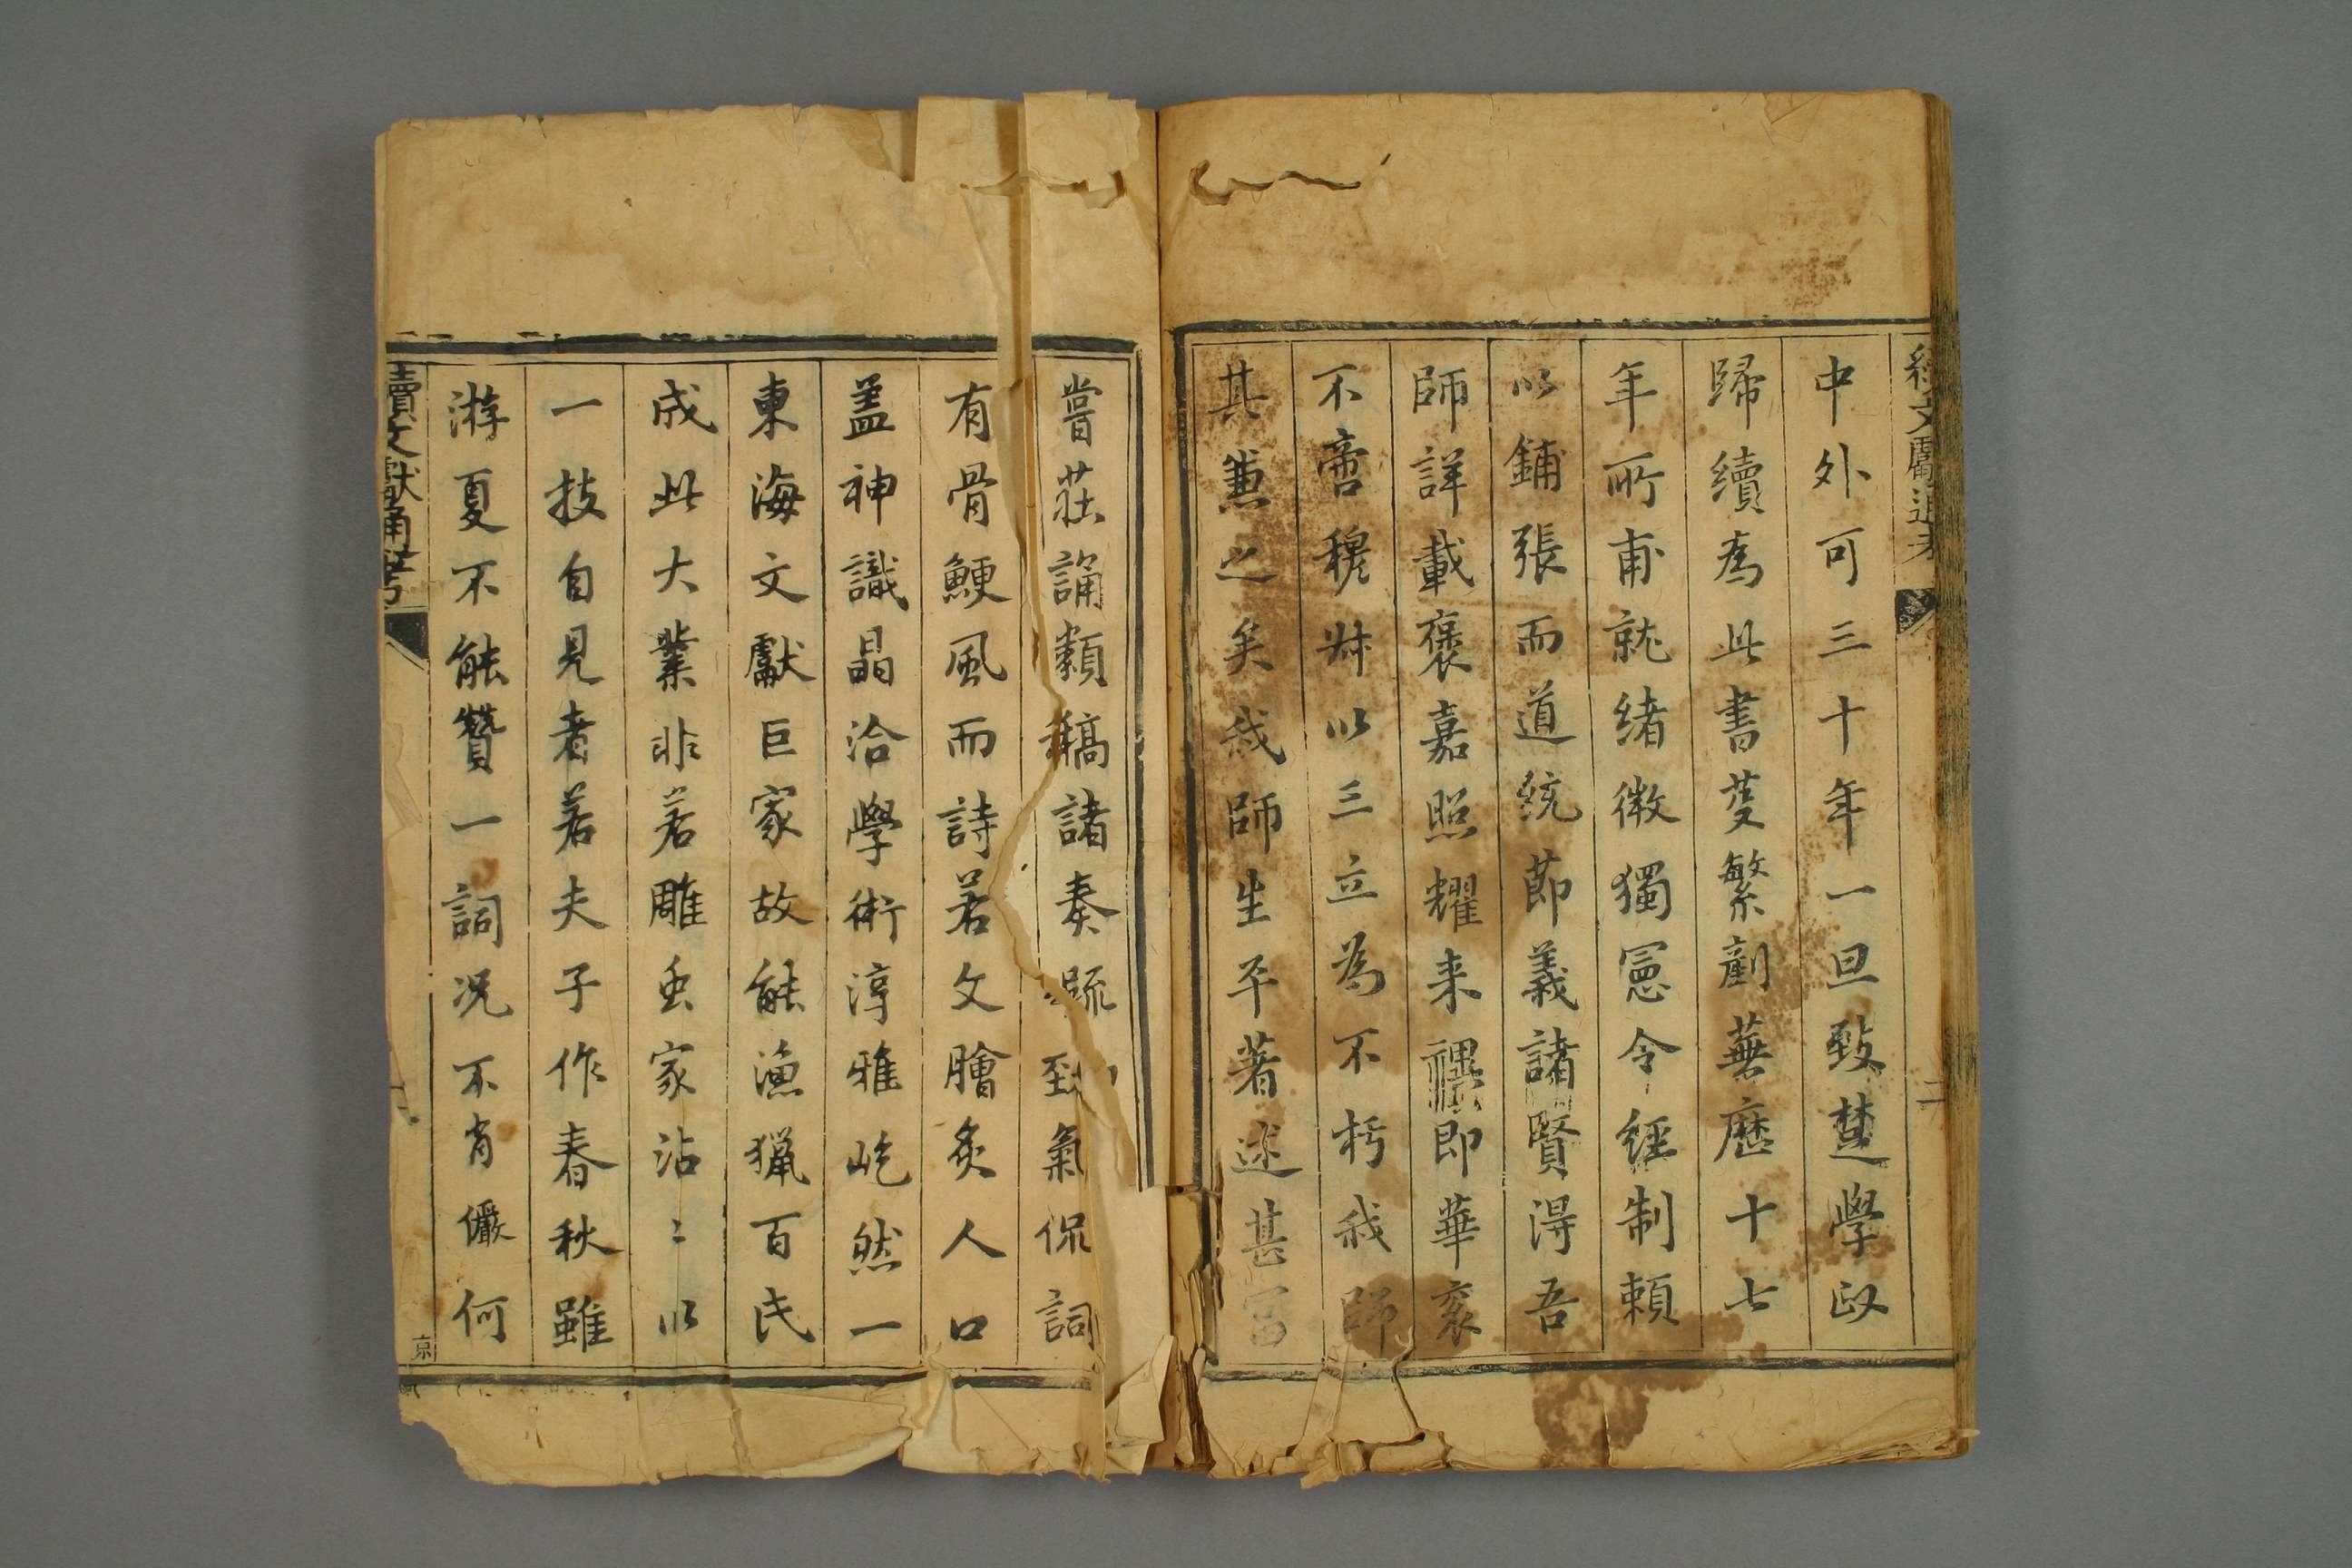 續文獻通考
二
中外可三十年一旦致楚學政
歸續為此書芟繁剷蕪歷十七
年所甫就緒徵獨憲令經制賴
以鋪張而道統節義諸賢得吾
師詳載褒嘉照耀来禩即華袞
不啻穆叔以三立為不朽我師
其兼之矣我師生平著述甚富
嘗莊誦類稿諸奏疏勁氣侃詞
有骨鯁風而詩若文膾炙人口
盖神識晶洽學術淳雅屹然一
東海文獻巨家故能漁獵百氏
成此大業非若雕虫家沾〻以
一技自見者若夫子作春秋雖
游夏不能贊一詞况不肖儼何
續文獻通考
京